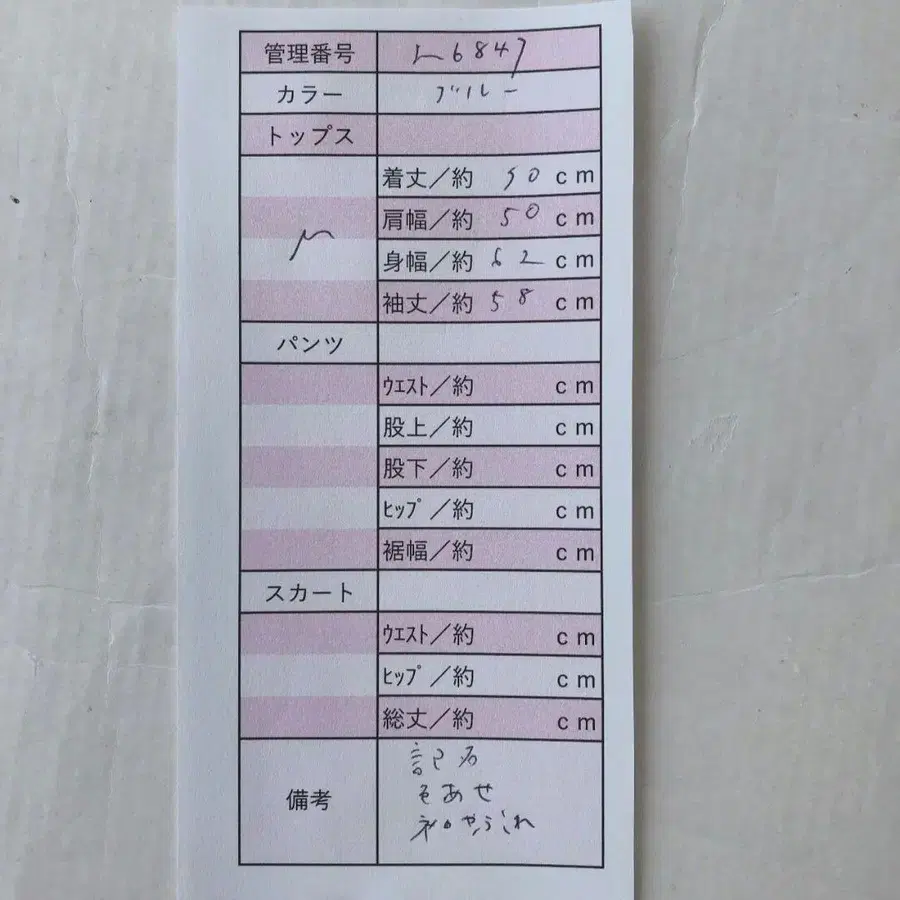 管理番号 L6847
カラー ブルー
トップス
着丈/約 50 cm
肩幅/約 50 cm
身幅/約 62 cm
袖丈/約 58 cm
パンツ
ウエスト/約 cm
股上/約 cm
股下/約 cm
ヒップ/約 cm
裾幅/約 cm
スカート
ウエスト/約 cm
ヒップ/約 cm
総丈/約 cm
備考
記名